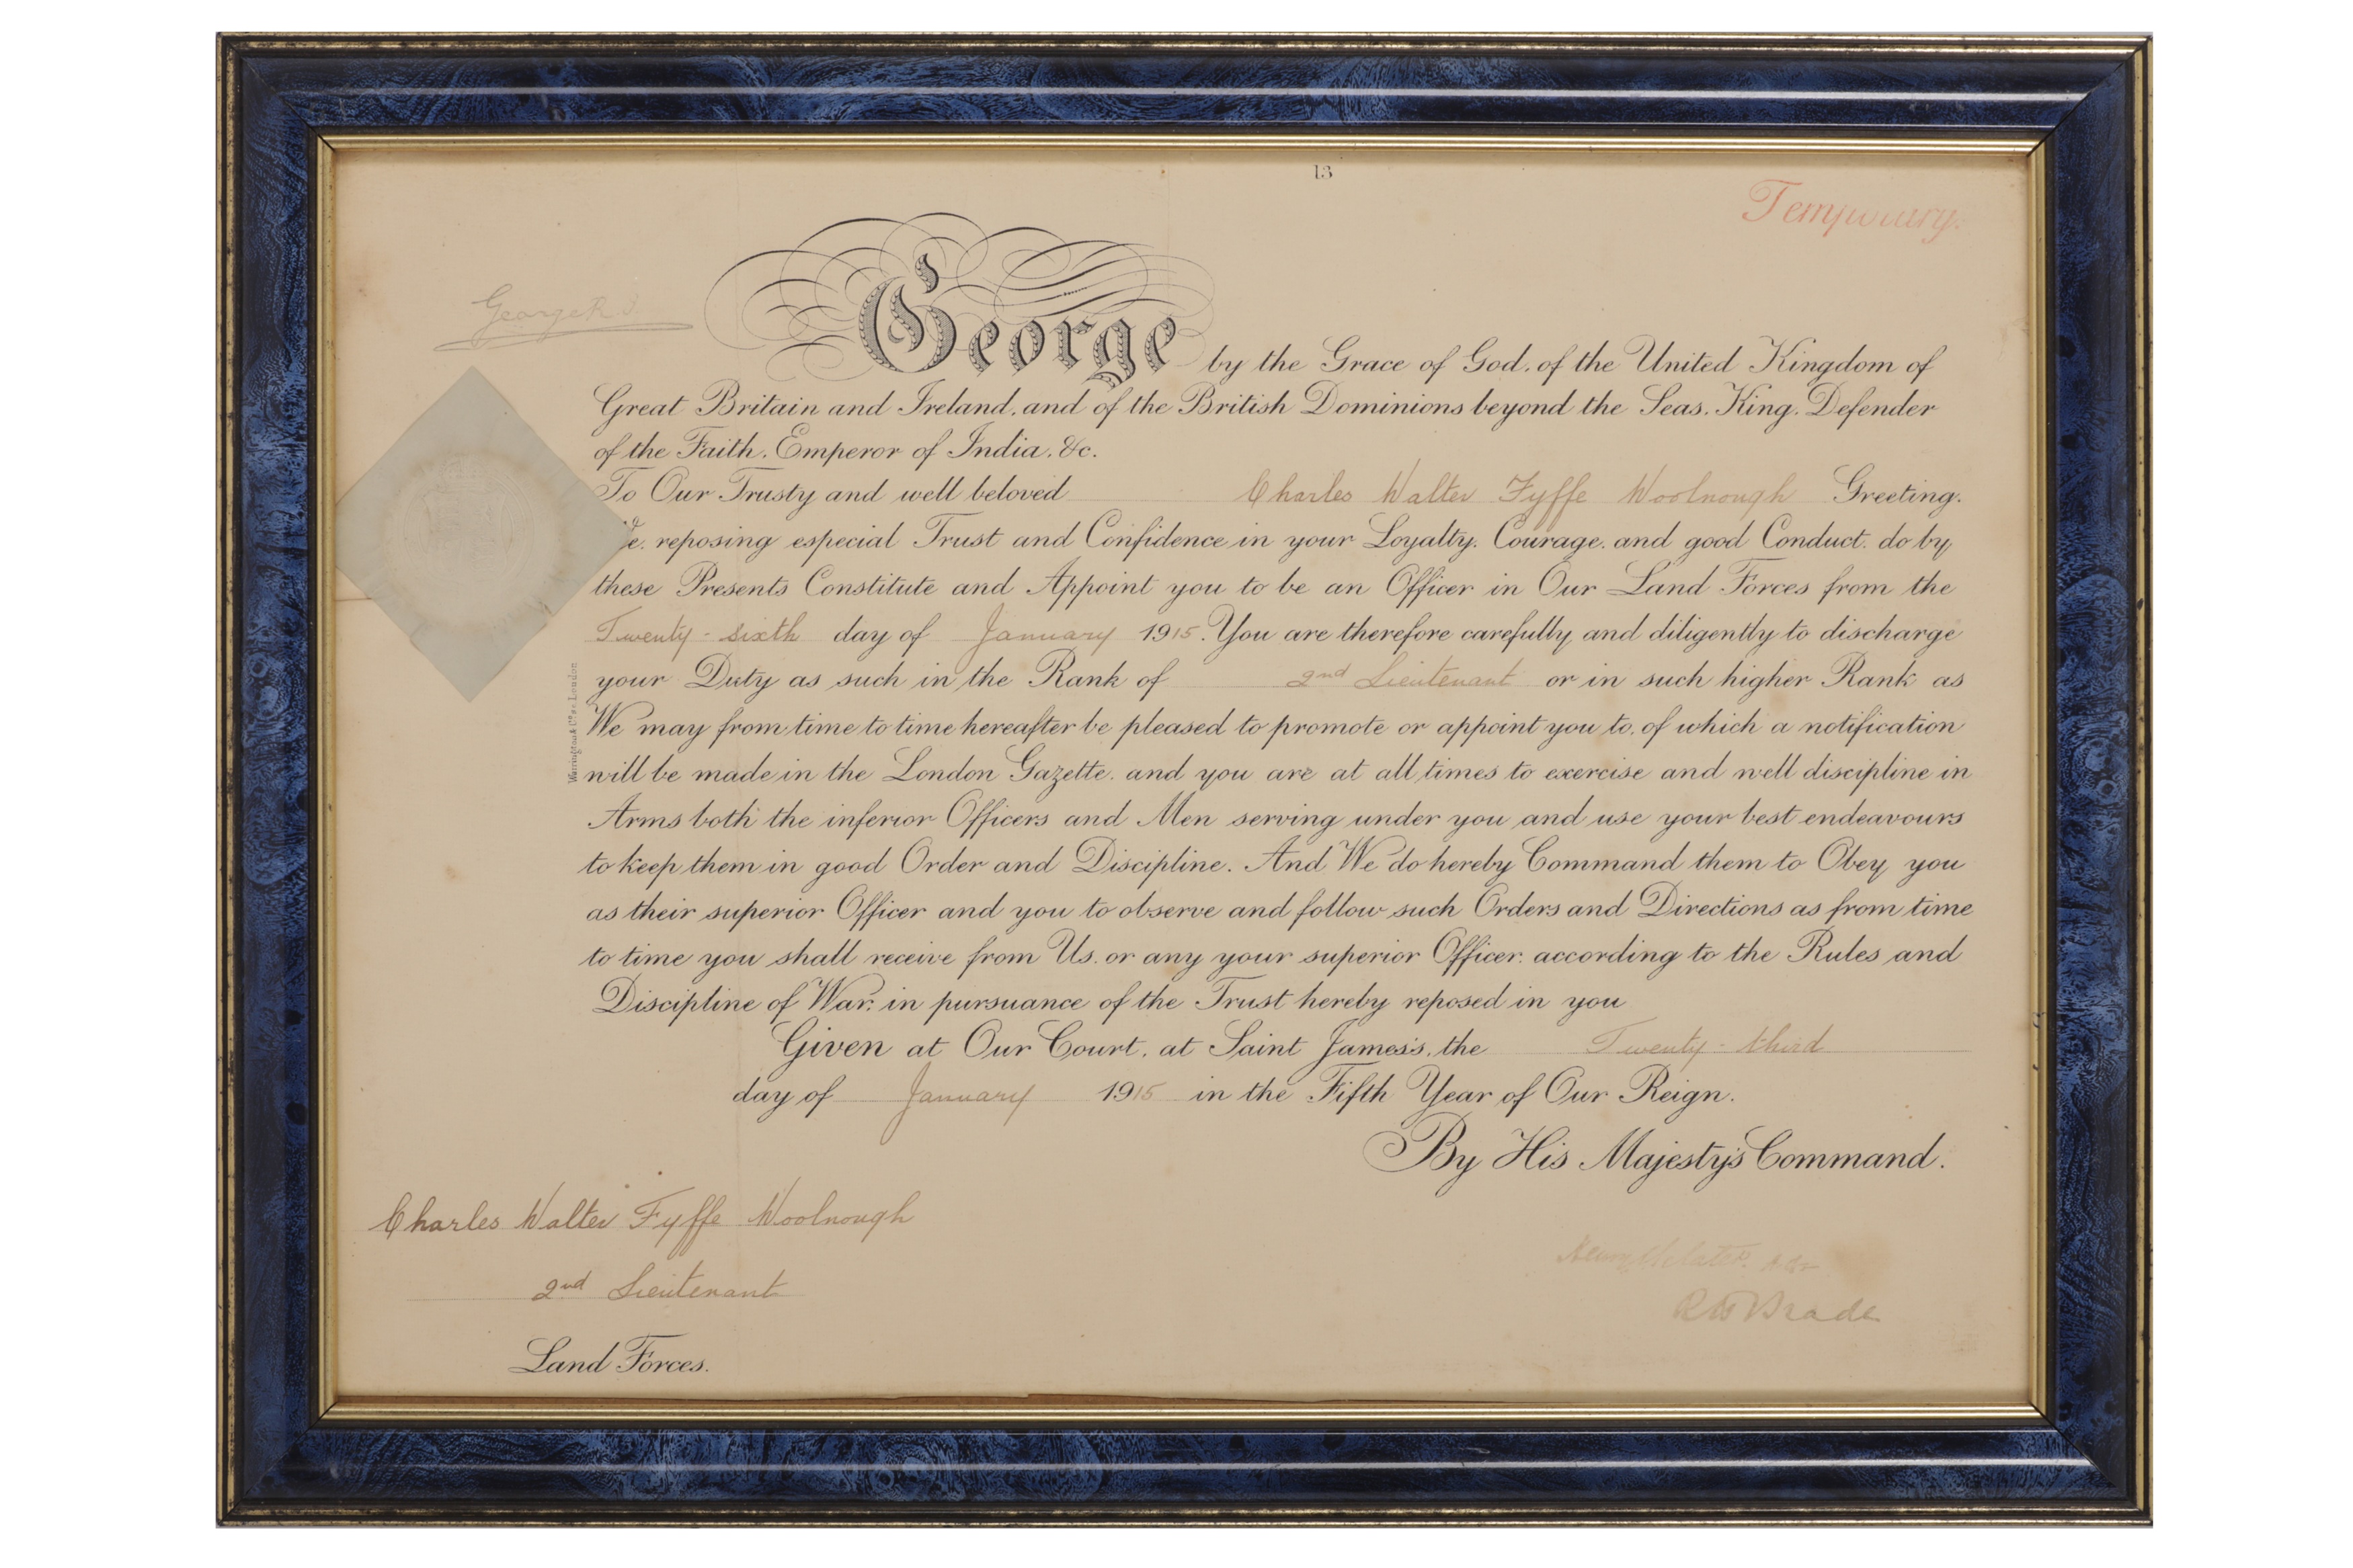 13
Temporary.
George R.I.
George by the Grace of God, of the United Kingdom of
Great Britain and Ireland, and of the British Dominions beyond the Seas, King, Defender
of the Faith, Emperor of India, &c.
To Our Trusty and well beloved Charles Walter Fyffe Woolnough Greeting.
We, reposing especial Trust and Confidence in your Loyalty, Courage, and good Conduct, do by
these Presents Constitute and Appoint you to be an Officer in Our Land Forces from the
Twenty-sixth day of January 1915. You are therefore carefully and diligently to discharge
your Duty as such in the Rank of 2nd Lieutenant or in such higher Rank as
We may from time to time hereafter be pleased to promote or appoint you to, of which a notification
will be made in the London Gazette, and you are at all times to exercise and well discipline in
Arms both the inferior Officers and Men serving under you and use your best endeavours
to keep them in good Order and Discipline. And We do hereby Command them to Obey you
as their superior Officer and you to observe and follow such Orders and Directions as from time
to time you shall receive from Us, or any your superior Officer, according to the Rules and
Discipline of War, in pursuance of the Trust hereby reposed in you
Given at Our Court, at Saint James's, the Twenty-third
day of January 1915 in the Fifth Year of Our Reign.
By His Majesty's Command.
Charles Walter Fyffe Woolnough
2nd Lieutenant
Land Forces.
R W Brade
London